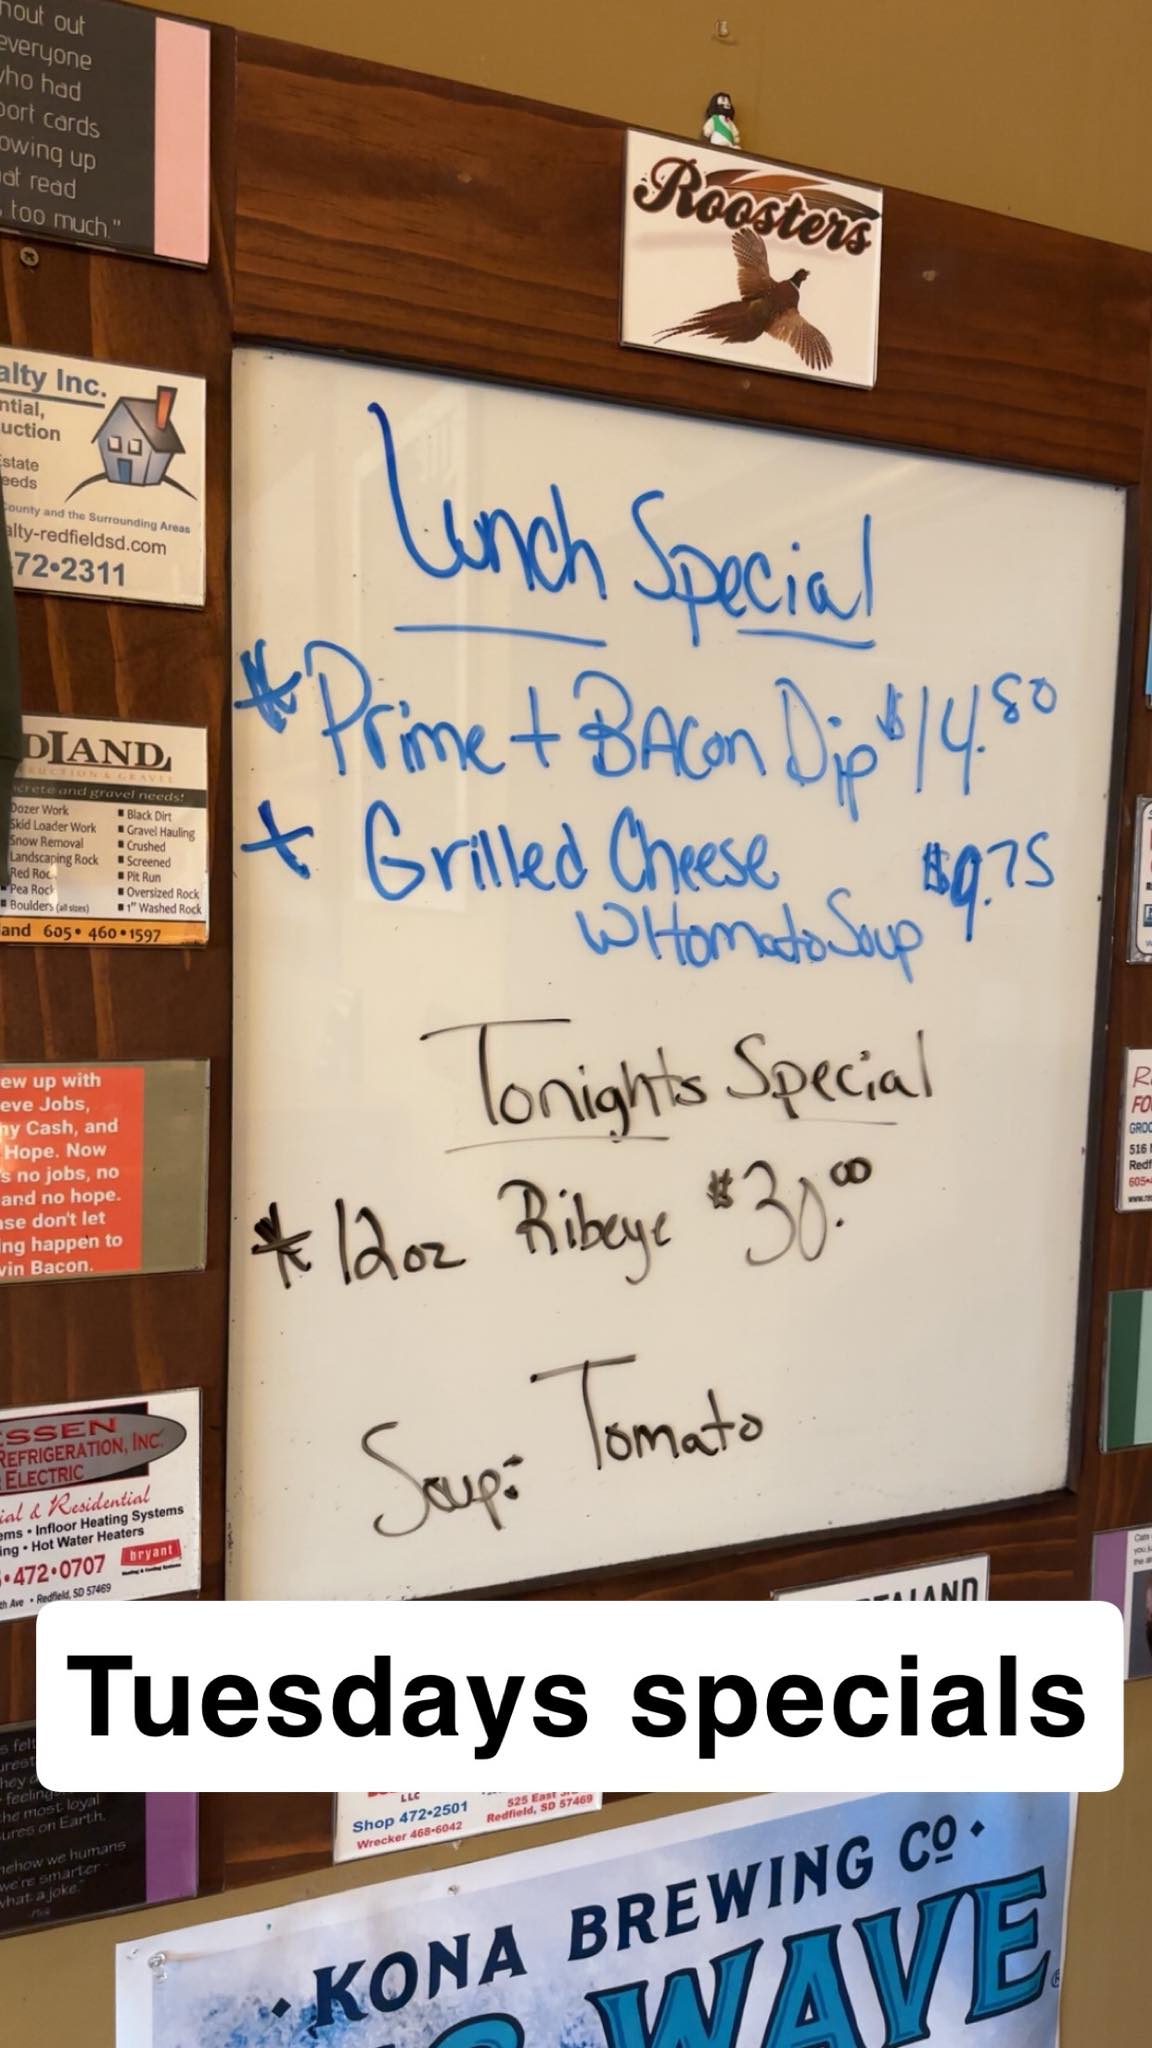 hout out
everyone
who had
port cards
owing up
at read
too much."
Roosters
alty Inc.
ntial,
uction
state
eeds
County and the Surrounding Areas
alty-redfieldsd.com
72•2311
Lunch Special
* Prime + BAcon Dip $14.80
+ Grilled Cheese $9.75
W/tomato Soup
Tonights Special
* 12oz Ribeye $30.00
Soup: Tomato
DLAND
crete and gravel needs!
Dozer Work
Skid Loader Work
Snow Removal
Landscaping Rock
Red Roc
Pea Rock
Boulders (all sizes)
Black Dirt
Gravel Hauling
Crushed
Screened
Pit Run
Oversized Rock
1" Washed Rock
and 605•460•1597
ew up with
eve Jobs,
ny Cash, and
Hope. Now
s no jobs, no
and no hope.
ase don't let
ing happen to
vin Bacon.
ESSEN
REFRIGERATION, INC.
ELECTRIC
ial & Residential
ems • Infloor Heating Systems
ing • Hot Water Heaters
•472•0707
bryant
th Ave • Redfield, SD 57469
FO
GROC
516
Redf
605-
Tuesdays specials
s felt
urest
they
feeling
the most loyal
ures on Earth.
mehow we humans
we're smarter
what a joke."
LLC
Shop 472•2501
Wrecker 468•6042
525 East
Redfield, SD 57469
• KONA BREWING CO •
WAVE